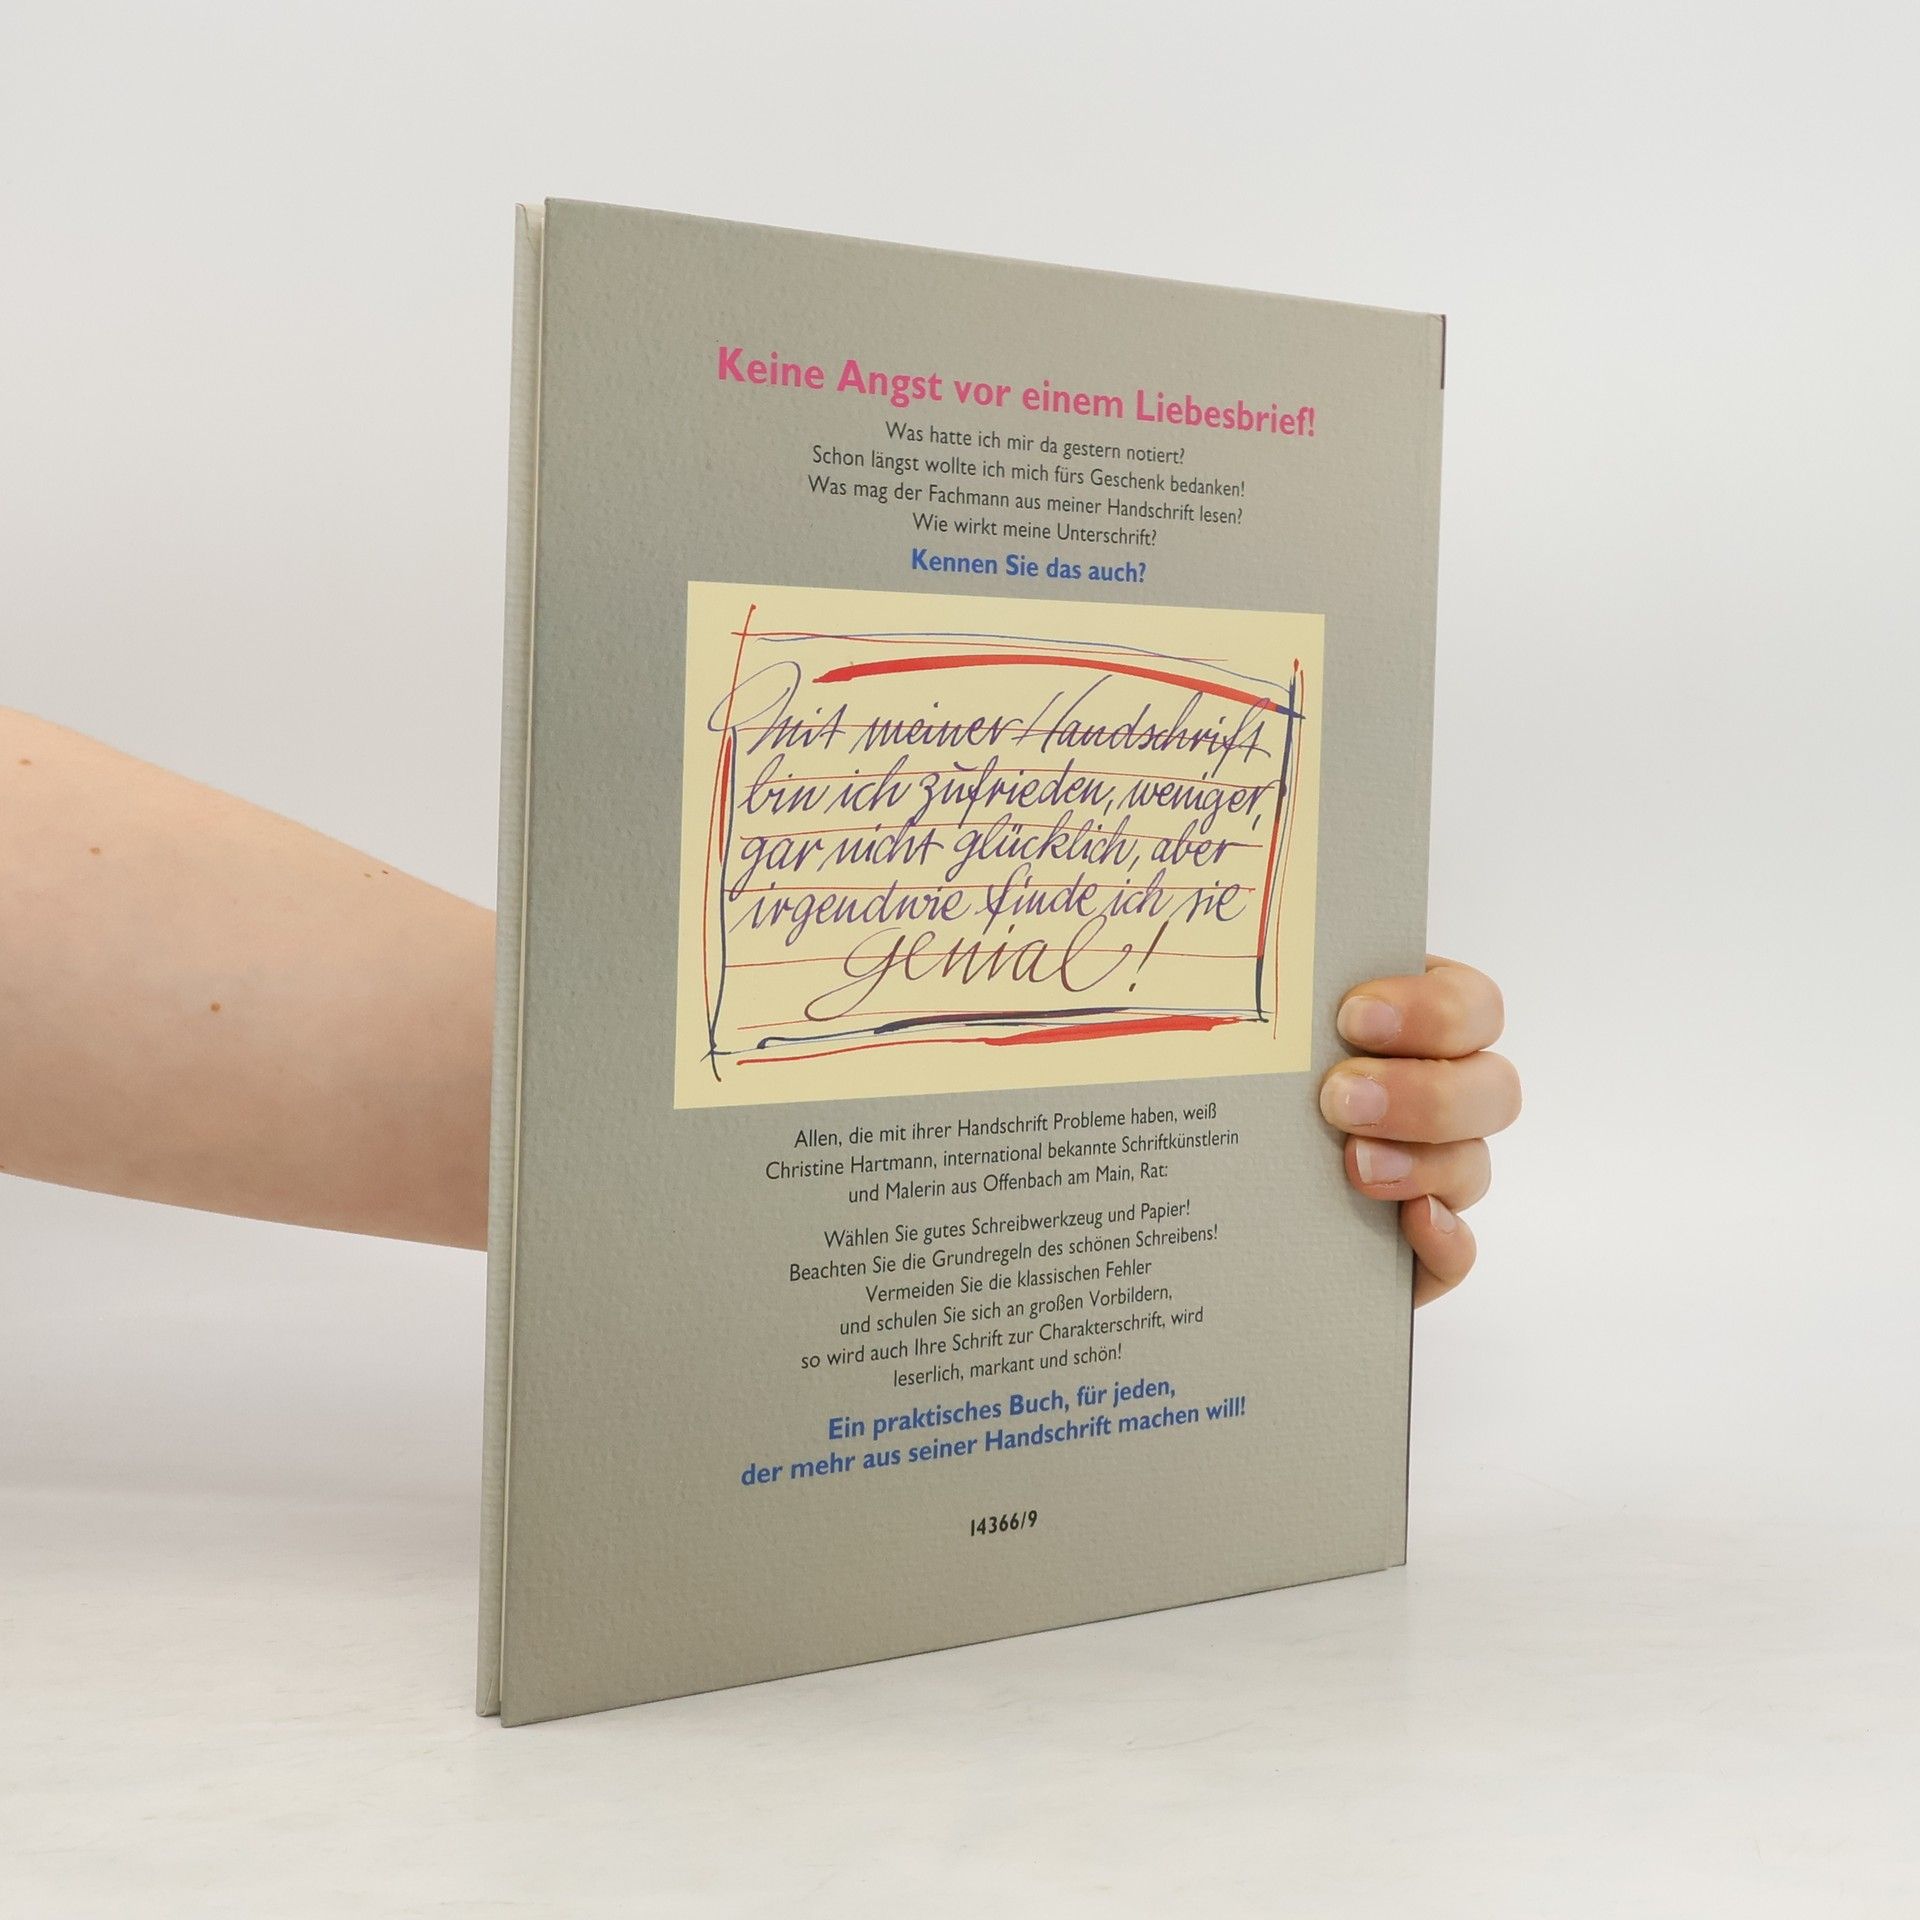 Keine Angst vor einem Liebesbrief!
Was hatte ich mir da gestern notiert?
Schon längst wollte ich mich fürs Geschenk bedanken!
Was mag der Fachmann aus meiner Handschrift lesen?
Wie wirkt meine Unterschrift?
Kennen Sie das auch?
Mit meiner Handschrift
bin ich zufrieden, weniger,
gar nicht glücklich, aber
irgendwie finde ich sie
genial!
Allen, die mit ihrer Handschrift Probleme haben, weiß
Christine Hartmann, international bekannte Schriftkünstlerin
und Malerin aus Offenbach am Main, Rat:
Wählen Sie gutes Schreibwerkzeug und Papier!
Beachten Sie die Grundregeln des schönen Schreibens!
Vermeiden Sie die klassischen Fehler
und schulen Sie sich an großen Vorbildern,
so wird auch Ihre Schrift zur Charakterschrift, wird
leserlich, markant und schön!
Ein praktisches Buch, für jeden,
der mehr aus seiner Handschrift machen will!
14366/9